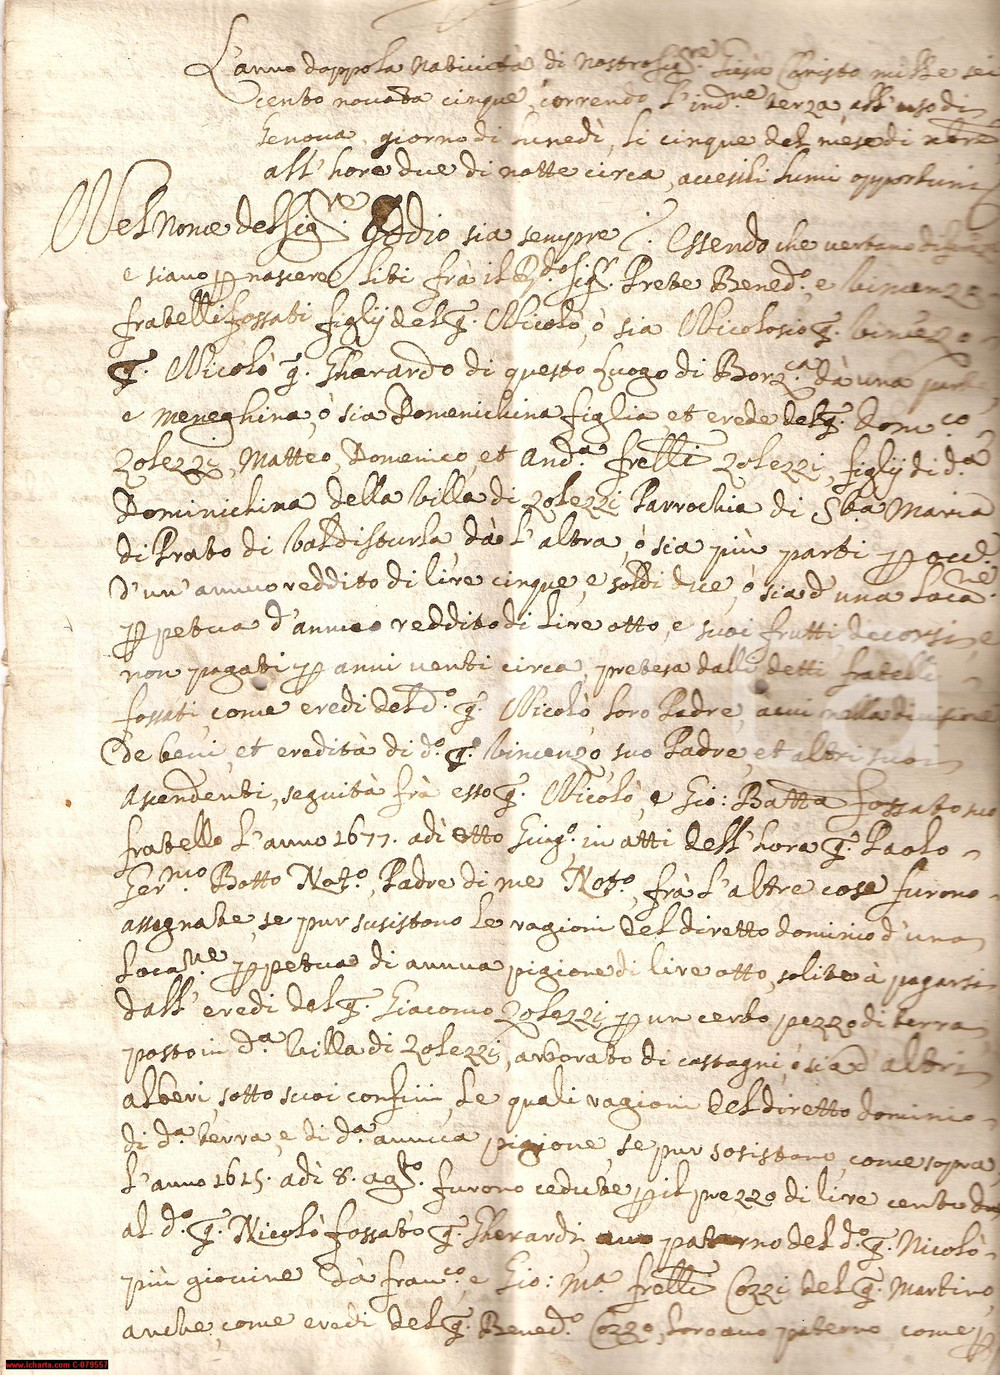 L'anno doppo la Natività di nostro Sig.re Giesù Christo mille sei
cento novanta cinque, correndo l'ind.ne terza all'uso di
Genova, giorno di Lunedì, li cinque del mese di xbre
all'hore due di notte circa, accesi li lumi opportuni
Nel Nome del Sig.re Iddio sia sempre. Essendo che vertano
e siano p nascere liti frà il R.do Sig.r Prete Bened.o, e Vincenzo
fratelli Fossati figlij del q. Nicolò, ò sia Nicolosio q. Vincenzo
q. Nicolò q. Gherardo di questo Luogo di Borz.ca dà una parte
e Meneghina, ò sia Domenichina figlia, et erede del q. Dom.co
Zolezzi, Matteo, Domenico, et And.a frelli Zolezzi, figlij di d.a
Dominichina della Villa di Zolezzi Parrochia di S.ta Maria
di Prato di Valdisturla, dà l'altra, ò sia più parti p occ.ne
d'un annuo reddito di lire cinque, e soldi dice, ò sia d'una Loca.ne
ppetua d'annuo reddito di lire otto, e suoi frutti decorsi, e
non pagati p anni venti circa, pretesa dalli detti fratelli
fossati come eredi del d.o q. Nicolò loro Padre, a cui nella divisione
de beni, et eredità di d.o q. Vincenzo suo Padre, et altri suoi
Ascendenti, seguità frà esso q. Nicolò, e Gio: Batta Fossato suo
fratello l'anno 1677. adì otto Giug.o in atti dell'hora q. Paolo
Ger.mo Botto Not.o, Padre di me Not.o, frà l'altre cose furono
assegnate, se pur susistono le ragioni del diretto dominio d'una
Loca.ne ppetua di annua pigione di lire otto, solite à pagarsi
dall'eredi del q. Giacomo Zolezzi p un certo pezzo di terra
posto in d.a Villa di Zolezzi, arborato di castagni, ò sia d'altri
alberi, sotto suoi confini, le quali ragioni del diretto dominio
di d.a terra, e di d.a annua pigione, se pur sosistono, come sopra,
l'anno 1615. adì 8. ag.to furono cedute p il prezzo di lire cento
al d.o q. Nicolò fossato q. Gherardi, avo paterno del d.o q. Nicolò
più giovine dà fran.co, e Gio: Ma frelli Cozzi del q. Martino,
anche come eredi del q. Bened.o Cozzo, loro avo paterno come p
www.icharta.com C-079557